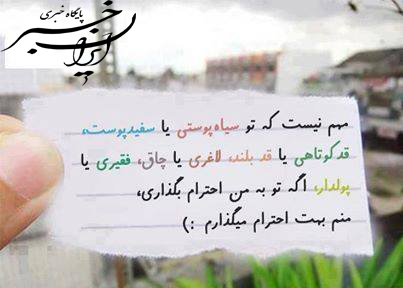 پایگاه خبری
ایران خبر
مهم نیست که تو سیاه پوستی یا سفیدپوست،
قدکوتاهی یا قد بلند، لاغری یا چاق، فقیری یا
پولدار، اگه تو به من احترام بگذاری،
منم بهت احترام میگذارم :)